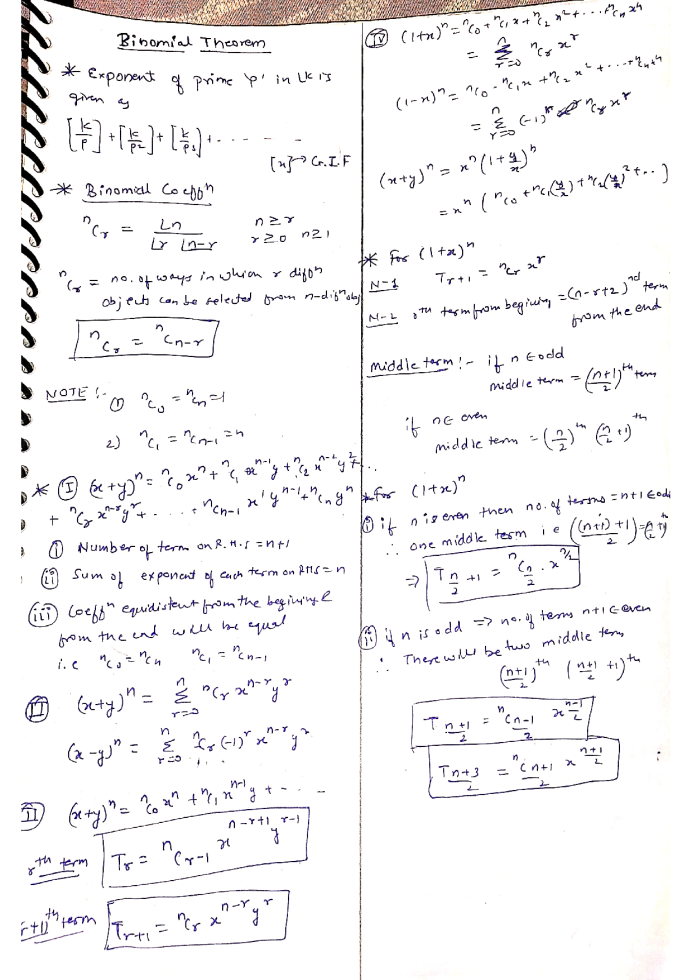 Binomial Theorem
* Exponent of prime 'p' in Lk is
given as
[k/p] + [k/p2] + [k/p3] + . . . . - - -
[x] → G.I.F
* Binomial Coeffn
nCr = Ln / Lr Ln-r   n ≥ r   r ≥ 0   n ≥ 1
nCr = no. of ways in which r diffn
objects can be selected from n-difn obj
nCr = nCn-r
NOTE :- ① nC0 = nCn = 1
2) nC1 = nCn-1 = n
* Ⓘ (x+y)^n = nC0 x^n + nC1 x^n-1 y + nC2 x^n-2 y^2 + . . .
+ nCr x^n-r y^r + . . . + nCn-1 x^1 y^n-1 + nCn y^n
ⓘ Number of term on R.H.S = n+1
ⓘⓘ Sum of exponent of each term on RHS = n
ⓘⓘⓘ Coeffn equidistent from the begining &
from the end will be equal
i.e nC0 = nCn   nC1 = nCn-1
Ⅱ (x+y)^n = Σ_{r=0}^{n} nCr x^n-r y^r
(x-y)^n = Σ_{r=0}^{n} nCr (-1)^r x^n-r y^r
Ⅲ (x+y)^n = nC0 x^n + nC1 x^n-1 y + - . . -
rth term   Tr = nCr-1 x^n-r+1 y^r-1
r+1)th term   Tr+1 = nCr x^n-r y^r
Ⅳ (1+x)^n = nC0 + nC1 x + nC2 x^2 + . . . + nCn x^n
= Σ_{r=0}^{n} nCr x^r
(1-x)^n = nC0 - nC1 x + nC2 x^2 + . . . - + nCn x^n
= Σ_{r=0}^{n} (-1)^r nCr x^r
(x+y)^n = x^n (1 + y/x)^n
= x^n (nC0 + nC1 (y/x) + nC2 (y/x)^2 + . . ]
* For (1+x)^n
N-1   Tr+1 = nCr x^r
N-2   rth term from begining = (n-r+2)nd term
from the end
middle term :- if n ∈ odd
middle term = (n+1 / 2)th term
if n ∈ even
middle term = (n/2)th (n/2 + 1)th
* for (1+x)^n
ⓘ if n is even then no. of terms = n+1 ∈ odd
∴ one middle term i e ((n+1)+1 / 2) = (n/2 + 1)th
⇒ T n/2 +1 = nC n/2 . x^n/2
ⓘⓘ if n is odd ⇒ no. of terms n+1 ∈ even
∴ There will be two middle term
(n+1 / 2)th (n+1 / 2 + 1)th
T n+1 / 2 = nC n-1 / 2 x^n-1 / 2
T n+3 / 2 = nC n+1 / 2 x^n+1 / 2